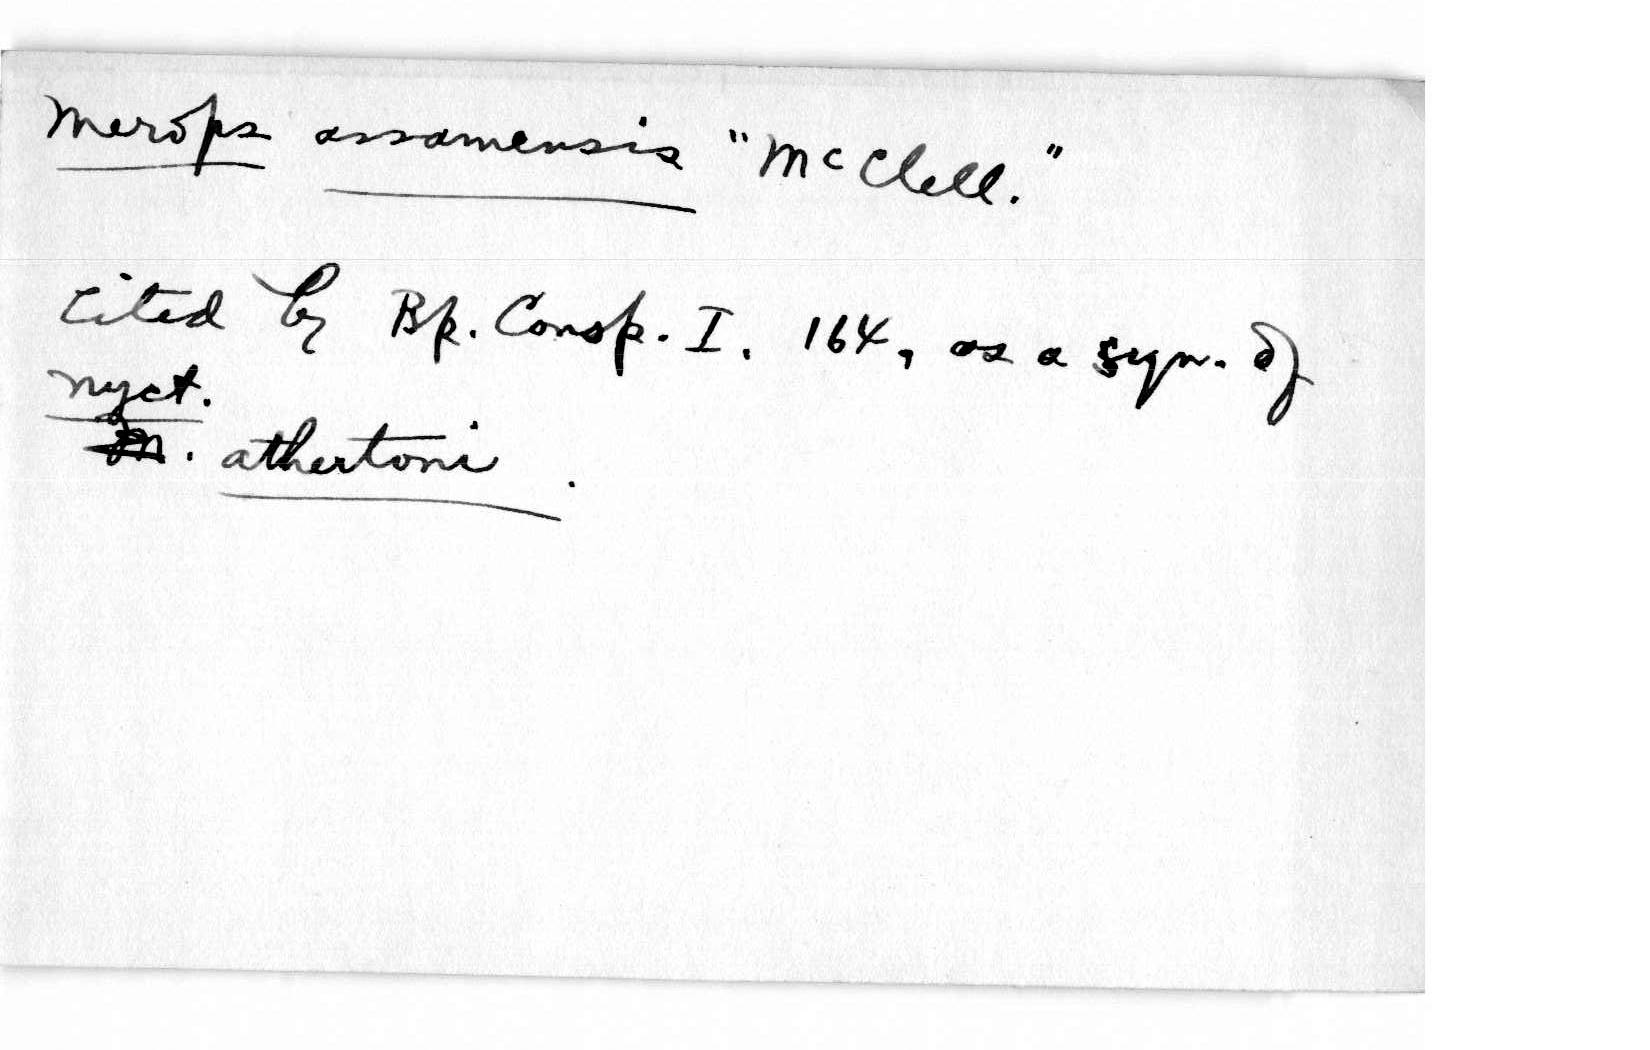 Merops assamensis "McClell."
Cited by Bp. Consp. I. 164, as a syn. of
Nyct.
M. athertoni.